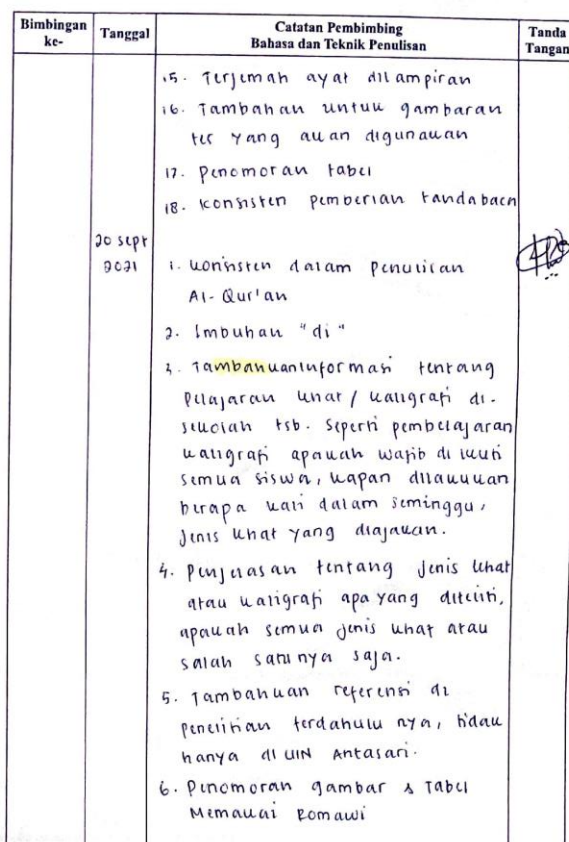 Bimbingan ke-
Tanggal
Catatan Pembimbing
Bahasa dan Teknik Penulisan
Tanda Tangan
15. Terjemah ayat dilampiran
16. Tambahan untuk gambaran
tes yang akan digunakan
17. Penomoran tabel
18. Konsisten pemberian tandabaca
20 sept
2021
1. Konsisten dalam penulisan
Al-Qur'an
2. Imbuhan "di"
3. Tambahkan informasi tentang
Pelajaran khat / kaligrafi di-
sekolah tsb. Seperti pembelajaran
kaligrafi apakah wajib di ikuti
semua siswa, kapan dilakukan
berapa kali dalam seminggu,
jenis khat yang diajarkan.
4. Penjelasan tentang jenis khat
atau kaligrafi apa yang diteliti,
apakah semua jenis khat atau
salah satunya saja.
5. Tambahkan referensi di
penelitian terdahulu nya, tidak
hanya di UIN Antasari.
6. Penomoran gambar & Tabel
Memakai Romawi